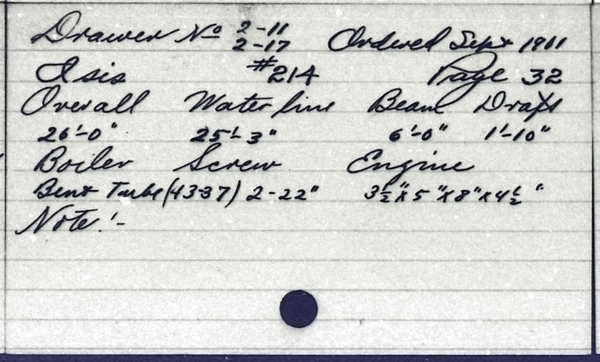 Drawer No 2-11
2-17 Ordered Sept 1911
Isis #214 Page 32
Overall Water line Beam Draft
26'-0" 25'-3" 6'-0" 1'-10"
Boiler Screw Engine
Bent Tube (4337) 2-22" 3½"x5"x8"x4½"
Note:-